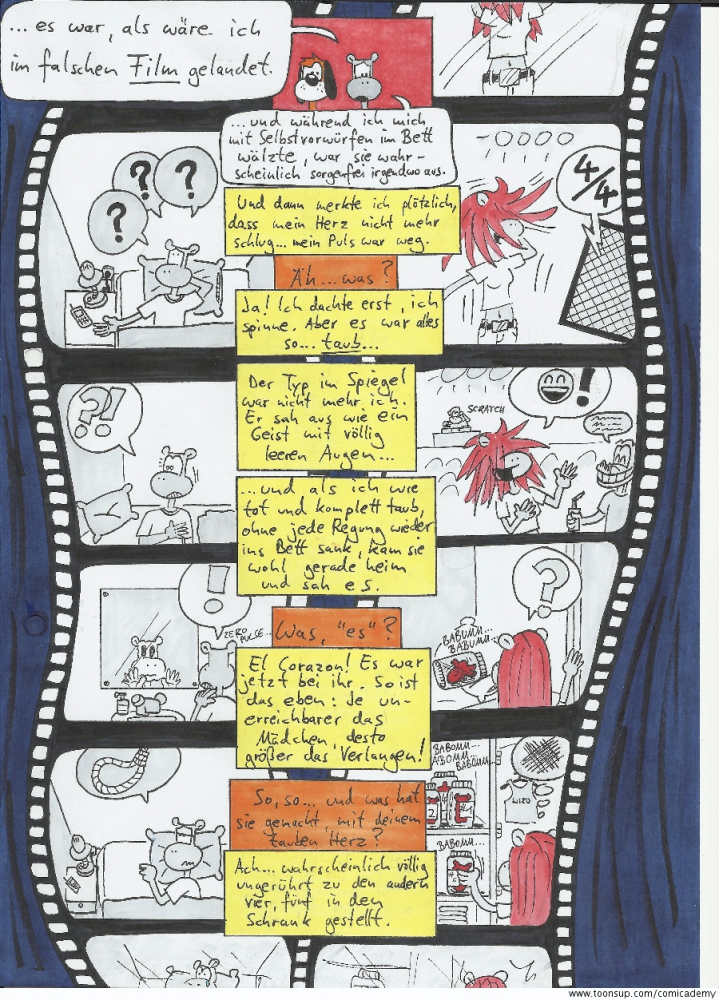 ... es war, als wäre ich
im falschen Film gelandet.
...und während ich mich
mit Selbstvorwürfen im Bett
wälzte, war sie wahr-
scheinlich sorgenfrei irgendwo aus.
? ? ?
4/4
Und dann merkte ich plötzlich,
dass mein Herz nicht mehr
schlug... mein Puls war weg.
Äh...was?
Ja! Ich dachte erst, ich
spinne. Aber es war alles
so... taub...
?!
SCRATCH
!
Der Typ im Spiegel
war nicht mehr ich.
Er sah aus wie ein
Geist mit völlig
leeren Augen...
...und als ich wie
tot und komplett taub,
ohne jede Regung wieder
ins Bett sank, kam sie
wohl gerade heim
und sah es.
!
ZERO
PULSE...
?
BABUMM...
BABUMM...
Was, "es"?
El Corazon! Es war
jetzt bei ihr. So ist
das eben: Je un-
erreichbarer das
Mädchen, desto
größer das Verlangen!
BABOMM...
ABOMM...
BABOMM...
BABOMM...
So, so... und was hat
sie gemacht, mit deinem
tauben Herz?
Ach... wahrscheinlich völlig
ungerührt zu den andern
vier, fünf in den
Schrank gestellt.
www.toonsup.com/comicademy